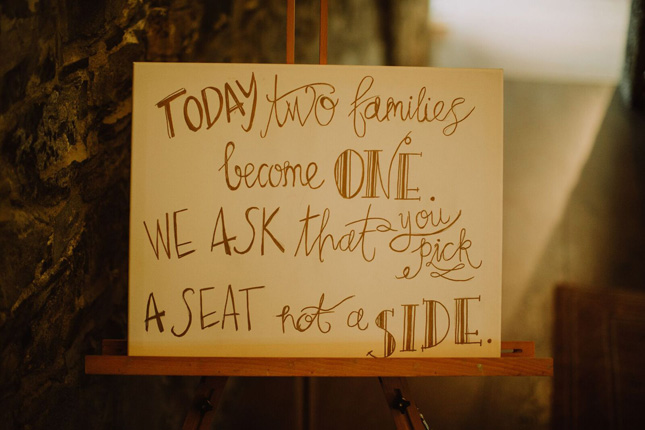 TODAY two families
become ONE.
WE ASK that you pick
A SEAT not a SIDE.